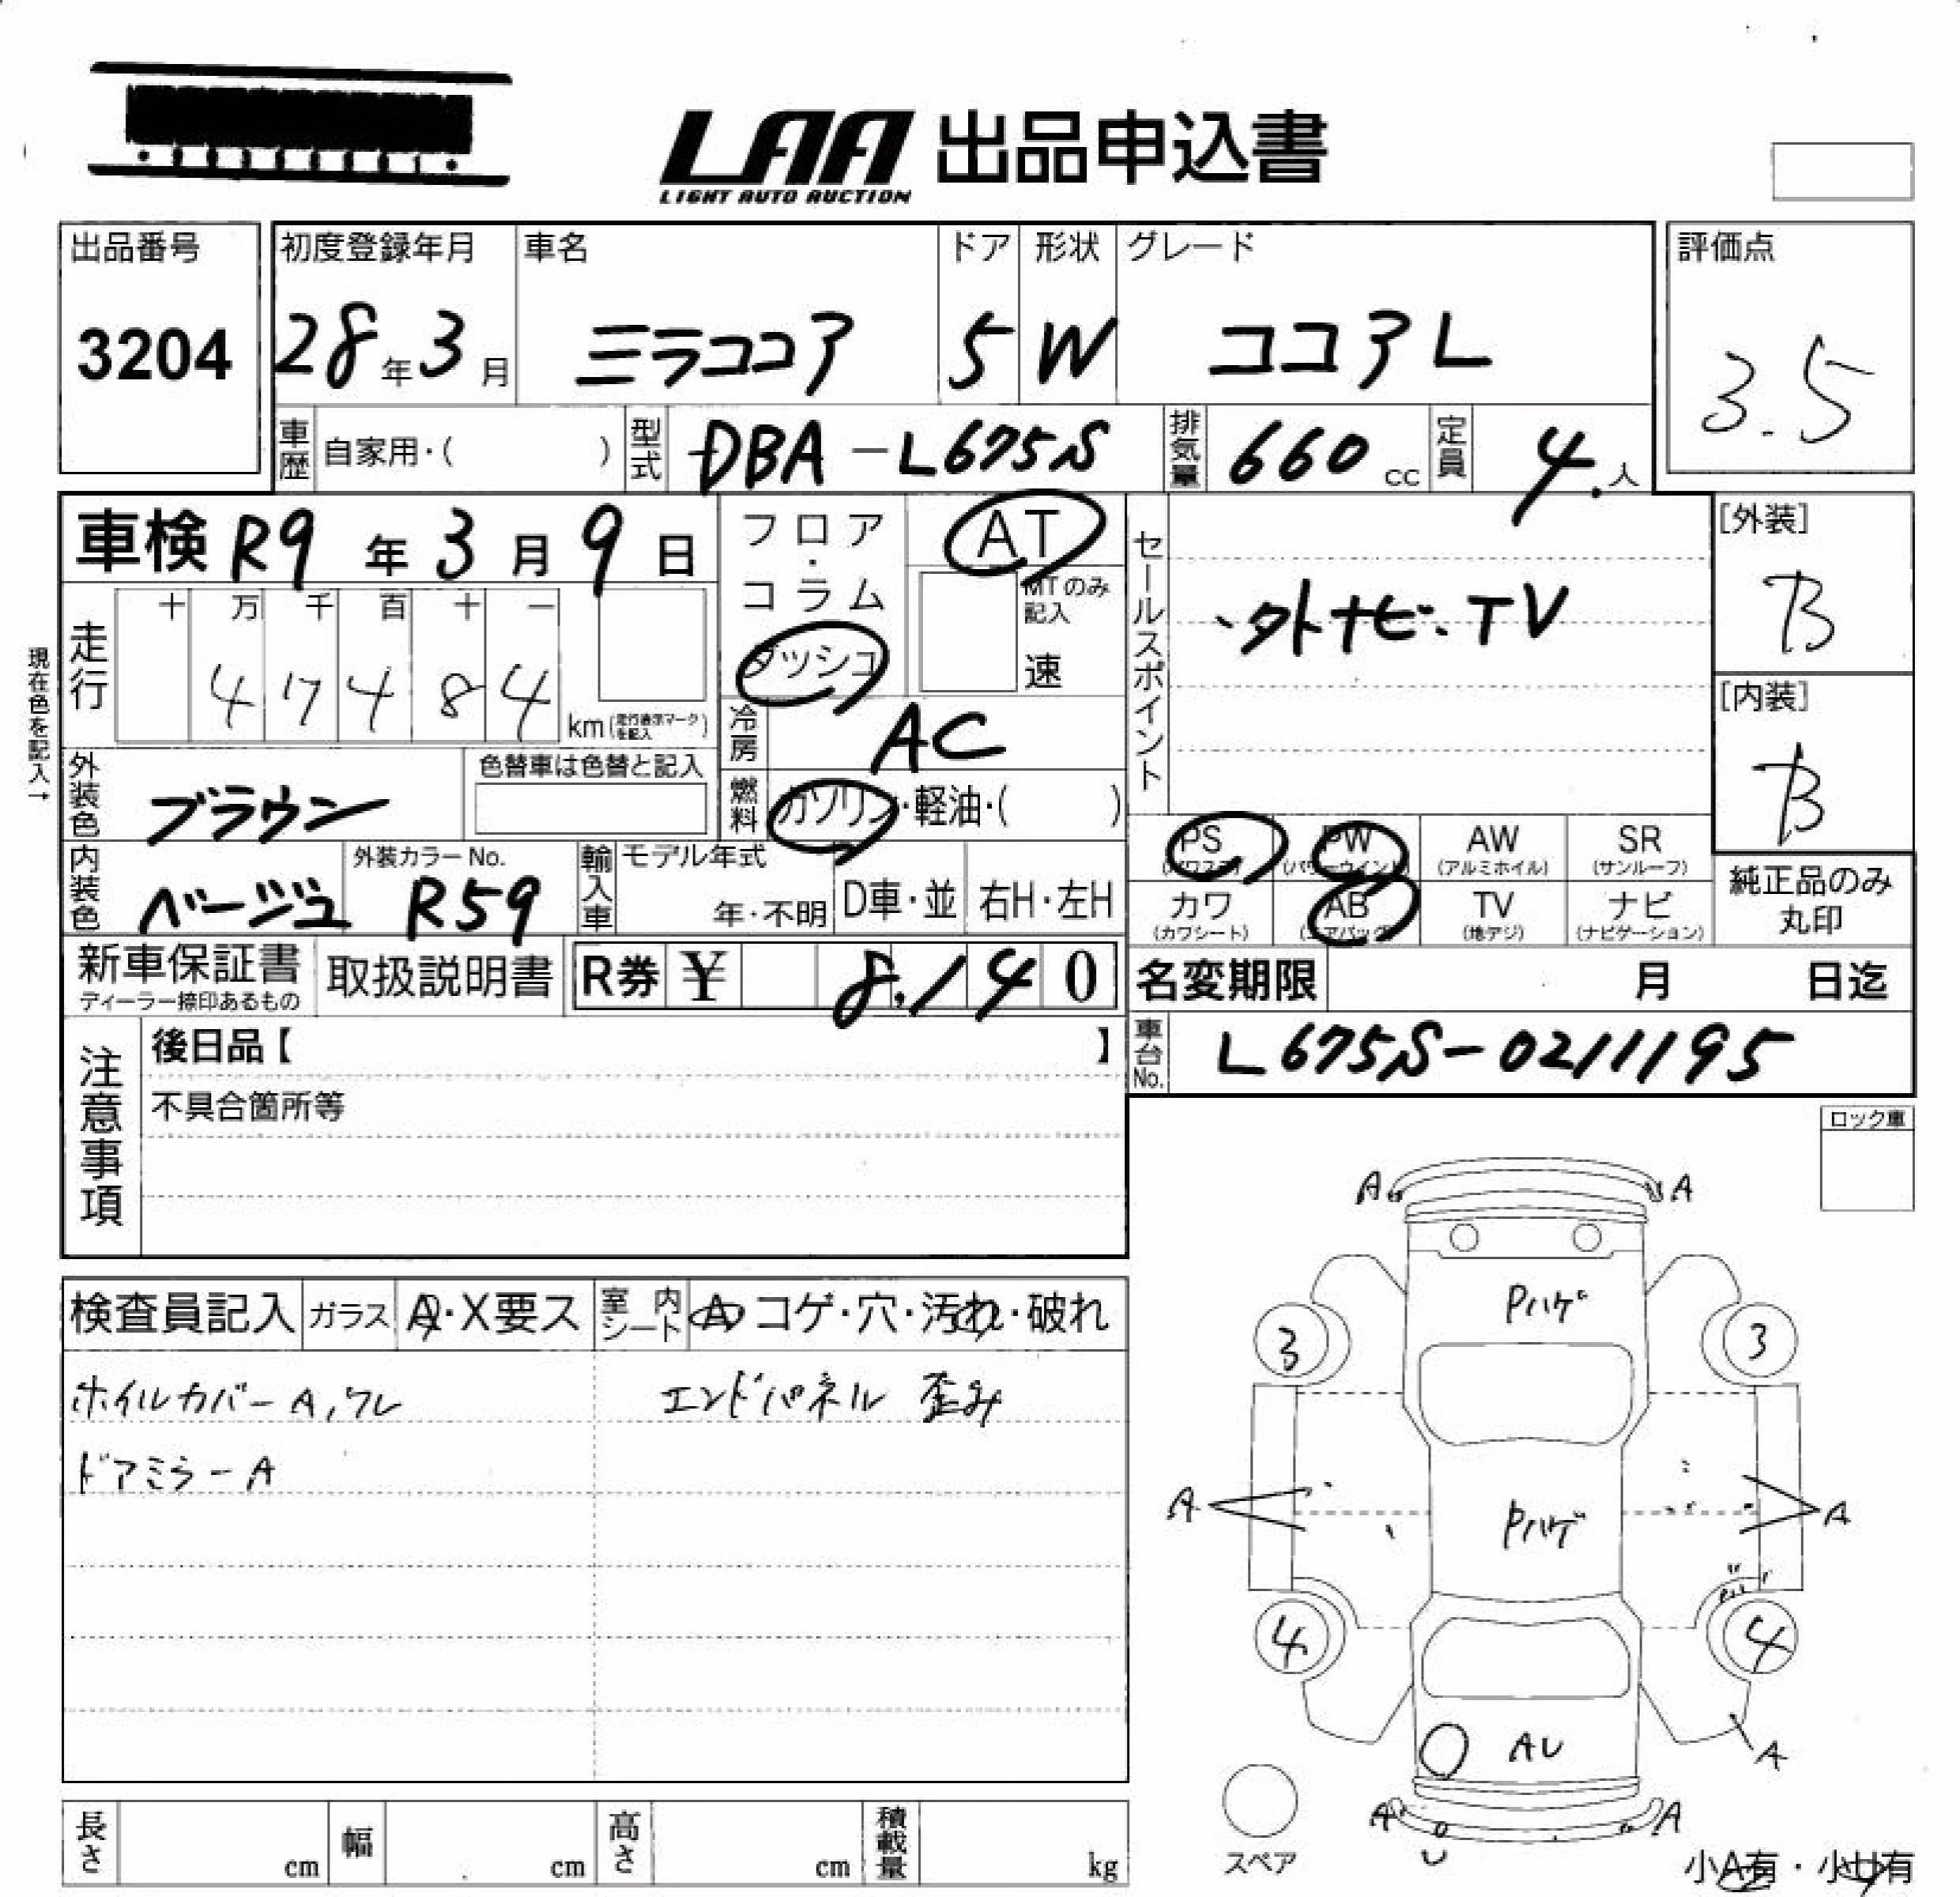 LAA 出品申込書
LIGHT AUTO AUCTION
出品番号 初度登録年月 車名 ドア 形状 グレード 評価点
3204 28年3月 ミラココア 5 W ココア L 3.5
車歴 自家用・( ) 型式 DBA-L675S 排気量 660 cc 定員 4人
車検 R9年3月9日 フロア・コラム ダッシュ AT MTのみ記入 速
セールスポイント 外ナビ・TV
[外装] B
現在色を記入→
走行 十 万 千 百 十 一
47484 km (走行表示マークを記入)
冷房 AC
[内装] B
外装色 ブラウン 色替車は色替と記入 燃料 ガソリン・軽油・( )
PS (パワステ) PW (パワーウインド) AW (アルミホイル) SR (サンルーフ)
内装色 ベージュ 外装カラーNo. R59 輸入車 モデル年式 年・不明 D車・並 右H・左H
カワ (カワシート) AB (エアバッグ) TV (地デジ) ナビ (ナビゲーション)
純正品のみ丸印
新車保証書 ディーラー捺印あるもの 取扱説明書 R券 ¥ 8,140 名変期限 月 日迄
注意事項 後日品【 】
車台No. L675S-0211195
不具合箇所等
ロック車
検査員記入 ガラス A・X要ス 室内シート A コゲ・穴・汚れ・破れ
ホイルカバーA,ワレ エンドパネル 歪み
ドアミラーA
A A
Pハゲ
3 3
A Pハゲ A
4 4
AU A
A U A
スペア 小A有・小U有
長さ cm 幅 cm 高さ cm 積載量 kg